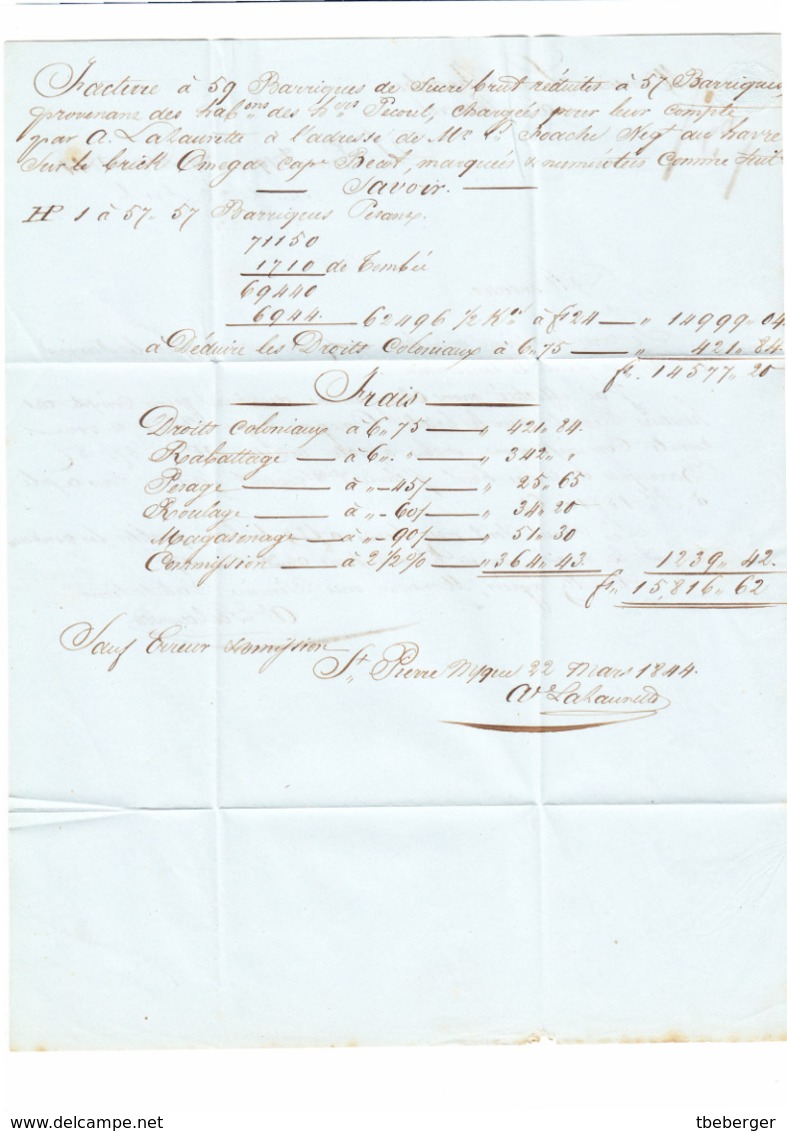 Facture à 59 Barriques de Sucre brut réduites à 57 Barriques,
provenant des hab.ons des h.ers Pecoul, chargées pour leur compte
par A. Lalaurette à l'adresse de Mr Roache Negt au havre
Sur le brick Omega cape Becot, marquées & numérotées comme Suit
Savoir.
HP 1 à 57. 57 Barriques Pesant.
71150
1710 de Tombée
69440
6944. 62496 1/2 Ko à f 24 " 14999 " 04.
à Déduire les Droits Coloniaux à 6 " 75 " 421 " 84.
fr. 14577 " 20
Frais
Droits coloniaux à 6 " 75 " 421 " 84.
Rabattage à 6 " " " 342 " "
Pesage à " - 45/ " 25 " 65
Roulage à " - 60/ " 34 " 20
Magasinage à " - 90/ " 51 " 30
Commission à 2 1/2 % " 364 " 43. 1239 " 42.
fr. 15,816 " 62
Sauf Erreur & omission
St Pierre Mque 22 Mars 1844.
Ve Lalaurette
delcampe.net
tbeberger